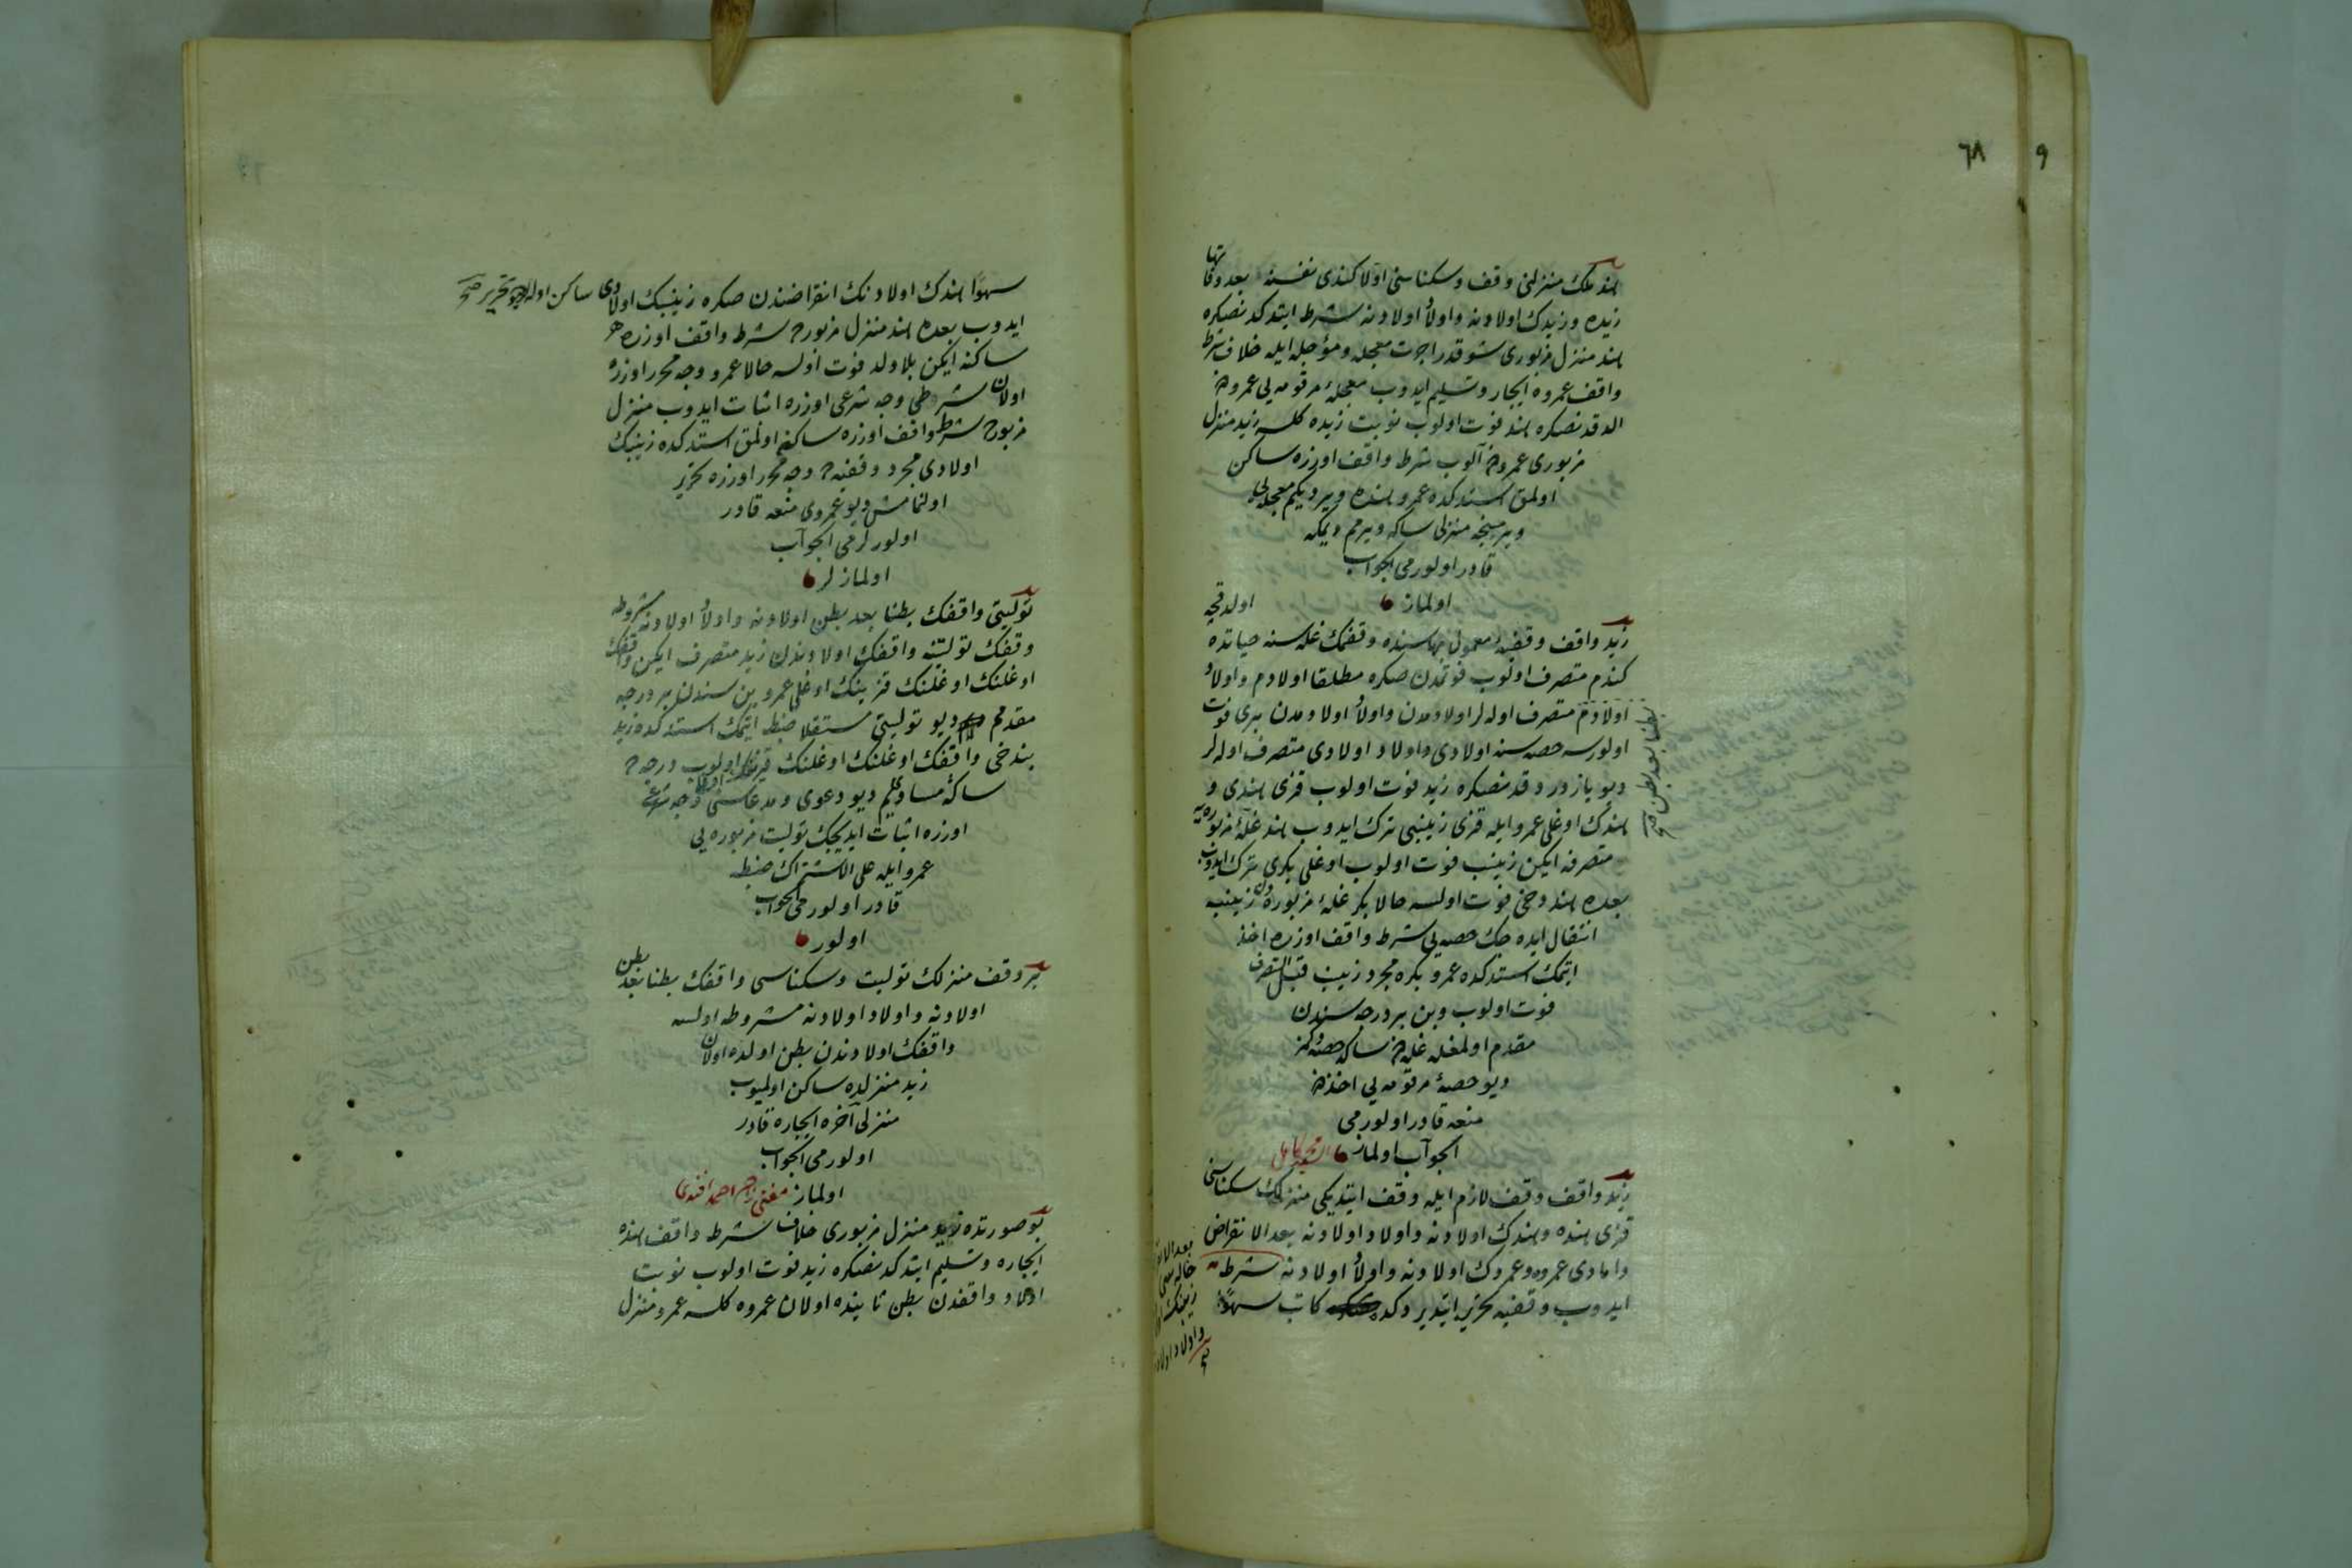 ٦٨
٩
هند ملك منزلنى وقف وسكناسنى اولا كندى نفسنه بعد وفاتها
زيده وزيدك اولادينه واولاد اولادينه شرط ايتدكدنصكره
هند منزل مزبورى شوقدر اجرت معجله ومؤجله ايله خلاف شرط
واقف عمروه ايجار وتسليم ايدوب معجلهٔ مرقومه يى عمرودن
الدقدنصكره هند فوت اولوب نوبت زيده كلسه زيد منزل
مزبورى عمرودن آلوب شرط واقف اوزره ساكن
اولمق استدكده عمرو هنده ويرديكم معجله يى
ويرمينجه منزلى ساكه ويرمم ديمكه
قادر اولورمى الجواب
اولماز
زيد واقف وقفيهٔ معمول بهاسنده وقفمك غله سنه حياتده اولدقجه
كندم متصرف اولوب فوتمدن صكره مطلقا اولادم واولاد
اولادم متصرف اولهلر اولادمدن واولاد اولادمدن برى فوت
بطنا بعد بطن صح
اولورسه حصه سنه اولادى واولاد اولادى متصرف اولهلر
ديو يازدردقدنصكره زيد فوت اولوب قزى هندى و
هندك اوغلى عمرو ايله قزى زينبى ترك ايدوب هند غلهٔ مزبوره يه
متصرفه ايكن زينب فوت اولوب اوغلى بكرى ترك ايدوب
بعده هند دخى فوت اولسه حالا بكر غلهٔ مزبوره دن زينبه
انتقال ايده جك حصه يى شرط واقف اوزره اخذ
ايتمك استدكده عمرو بكره مجرد زينب قبل التصرف
فوت اولوب وبن بر درجه سندن
مقدم اولمغله غله دن ساكه حصه دكمز
ديو حصهٔ مرقومه يى اخذدن
منعه قادر اولورمى
الجواب اولماز
زيد واقف وقف لازم ايله وقف ايتديكى منزلك سكناسنى
قزى هنده وهندك اولادينه واولاد اولادينه بعد الانقراض
دامادى عمروه وعمروك اولادينه واولاد اولادينه شرط
ايدوب وقفيه تحرير ايتديردكده كاتب سهوًا
واولاد اولاد
صح
سهوًا هندك اولادينك انقراضندن صكره زينبك اولادى ساكن اولهلر ديو تحرير صح
ايدوب بعده هند منزل مزبورده شرط واقف اوزره
ساكنه ايكن بلا ولد فوت اولسه حالا عمرو وجه محرر اوزره
اولان شرطى وجه شرعى اوزره اثبات ايدوب منزل
مزبورده شرط واقف اوزره ساكن اولمق استدكده زينبك
اولادى مجرد وقفيه ده وجه محرر اوزره تحرير
اولنمامش ديو عمروى منعه قادر
اولورلرمى الجواب
اولمازلر
توليتى واقفك بطنا بعد بطن اولادينه واولاد اولادينه مشروطه
وقفك توليتنه واقفك اولادندن زيد متصرف ايكن واقفك
اوغلنك اوغلنك قزينك اوغلى عمرو بن سندن بر درجه
مقدمم ديو توليتى مستقلا ضبط ايتمك استدكده زيد
بن دخى واقفك اوغلنك اوغلنك قزينك اوغلى اولوب درجه ده
ساكه مساويم ديو دعوى ومدعاسنى وجه شرعى
اوزره اثبات ايديجك توليت مزبوره يى
عمرو ايله على الاشتراك ضبطه
قادر اولورمى الجواب
اولور
بر وقف منزلك توليت وسكناسى واقفك بطنا بعد بطن
اولادينه واولاد اولادينه مشروطه اولسه
واقفك اولادندن بطن اولده اولان
زيد منزلده ساكن اولميوب
منزلى آخره ايجاره قادر
اولورمى الجواب
اولماز مفتى زاده احمد افندى
بو صورتده زيد منزل مزبورى خلاف شرط واقف هنده
ايجاره وتسليم ايتدكدنصكره زيد فوت اولوب نوبت
اولاد واقفدن بطن ثانيده اولان عمروه كلسه عمرو منزل